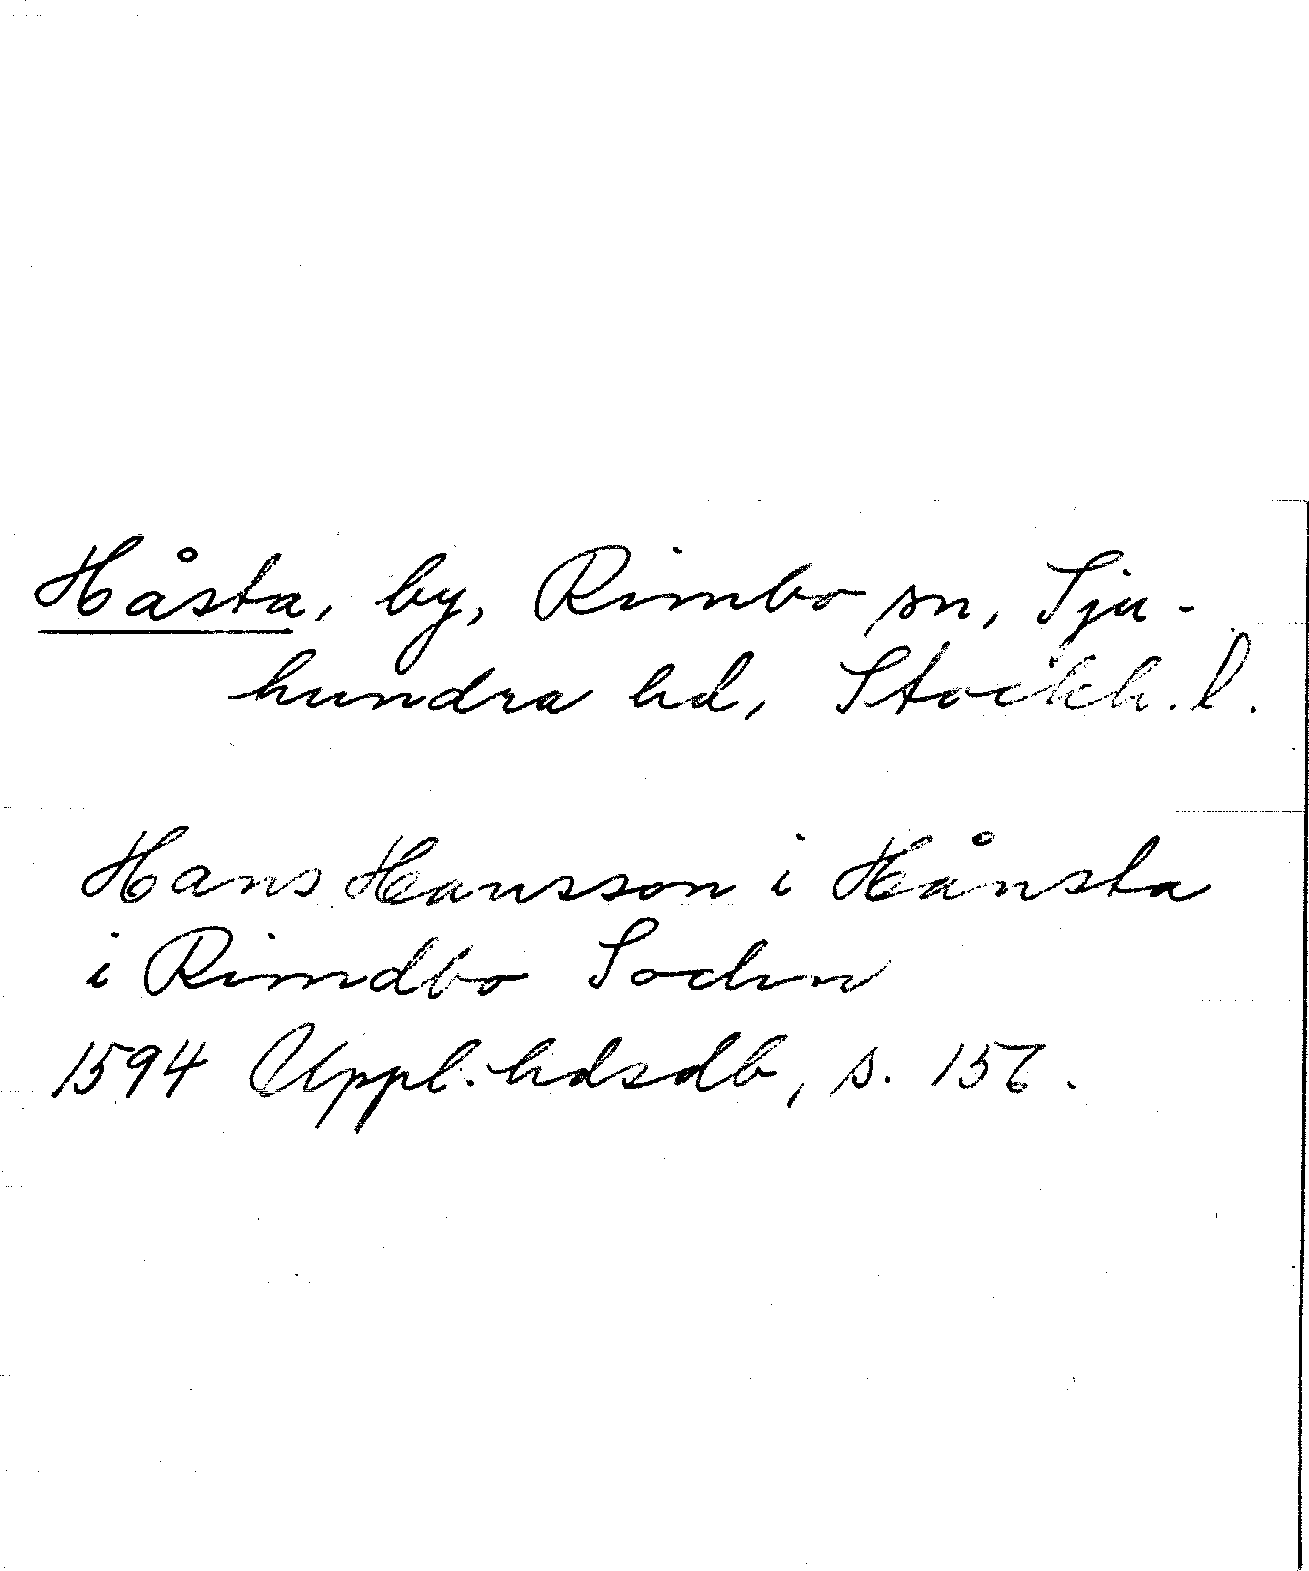 Håsta, by, Rimbo sn, Sju-
hundra hd, Stockh. l.
Hans Hansson i Hånsta
i Rimdbo Sochn
1594 Uppl. hdsdb, s.